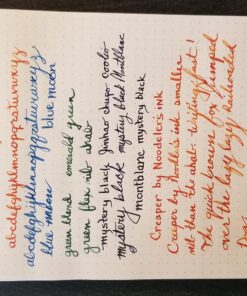 abcdefghijklmnopqrstuvwxyz
abcdefghijklmnopqrstuvwxyz
blue blue moon
green blend emerald green
green flex nib ahab
mystery black Jinhao
mystery black mystery black Montblanc
montblanc mystery black
Creaper by Noodelers ink
Creeper by Noodlers ink smaller
than the ahab. Writing fast!
The quick brown fox jumped
over the lazy